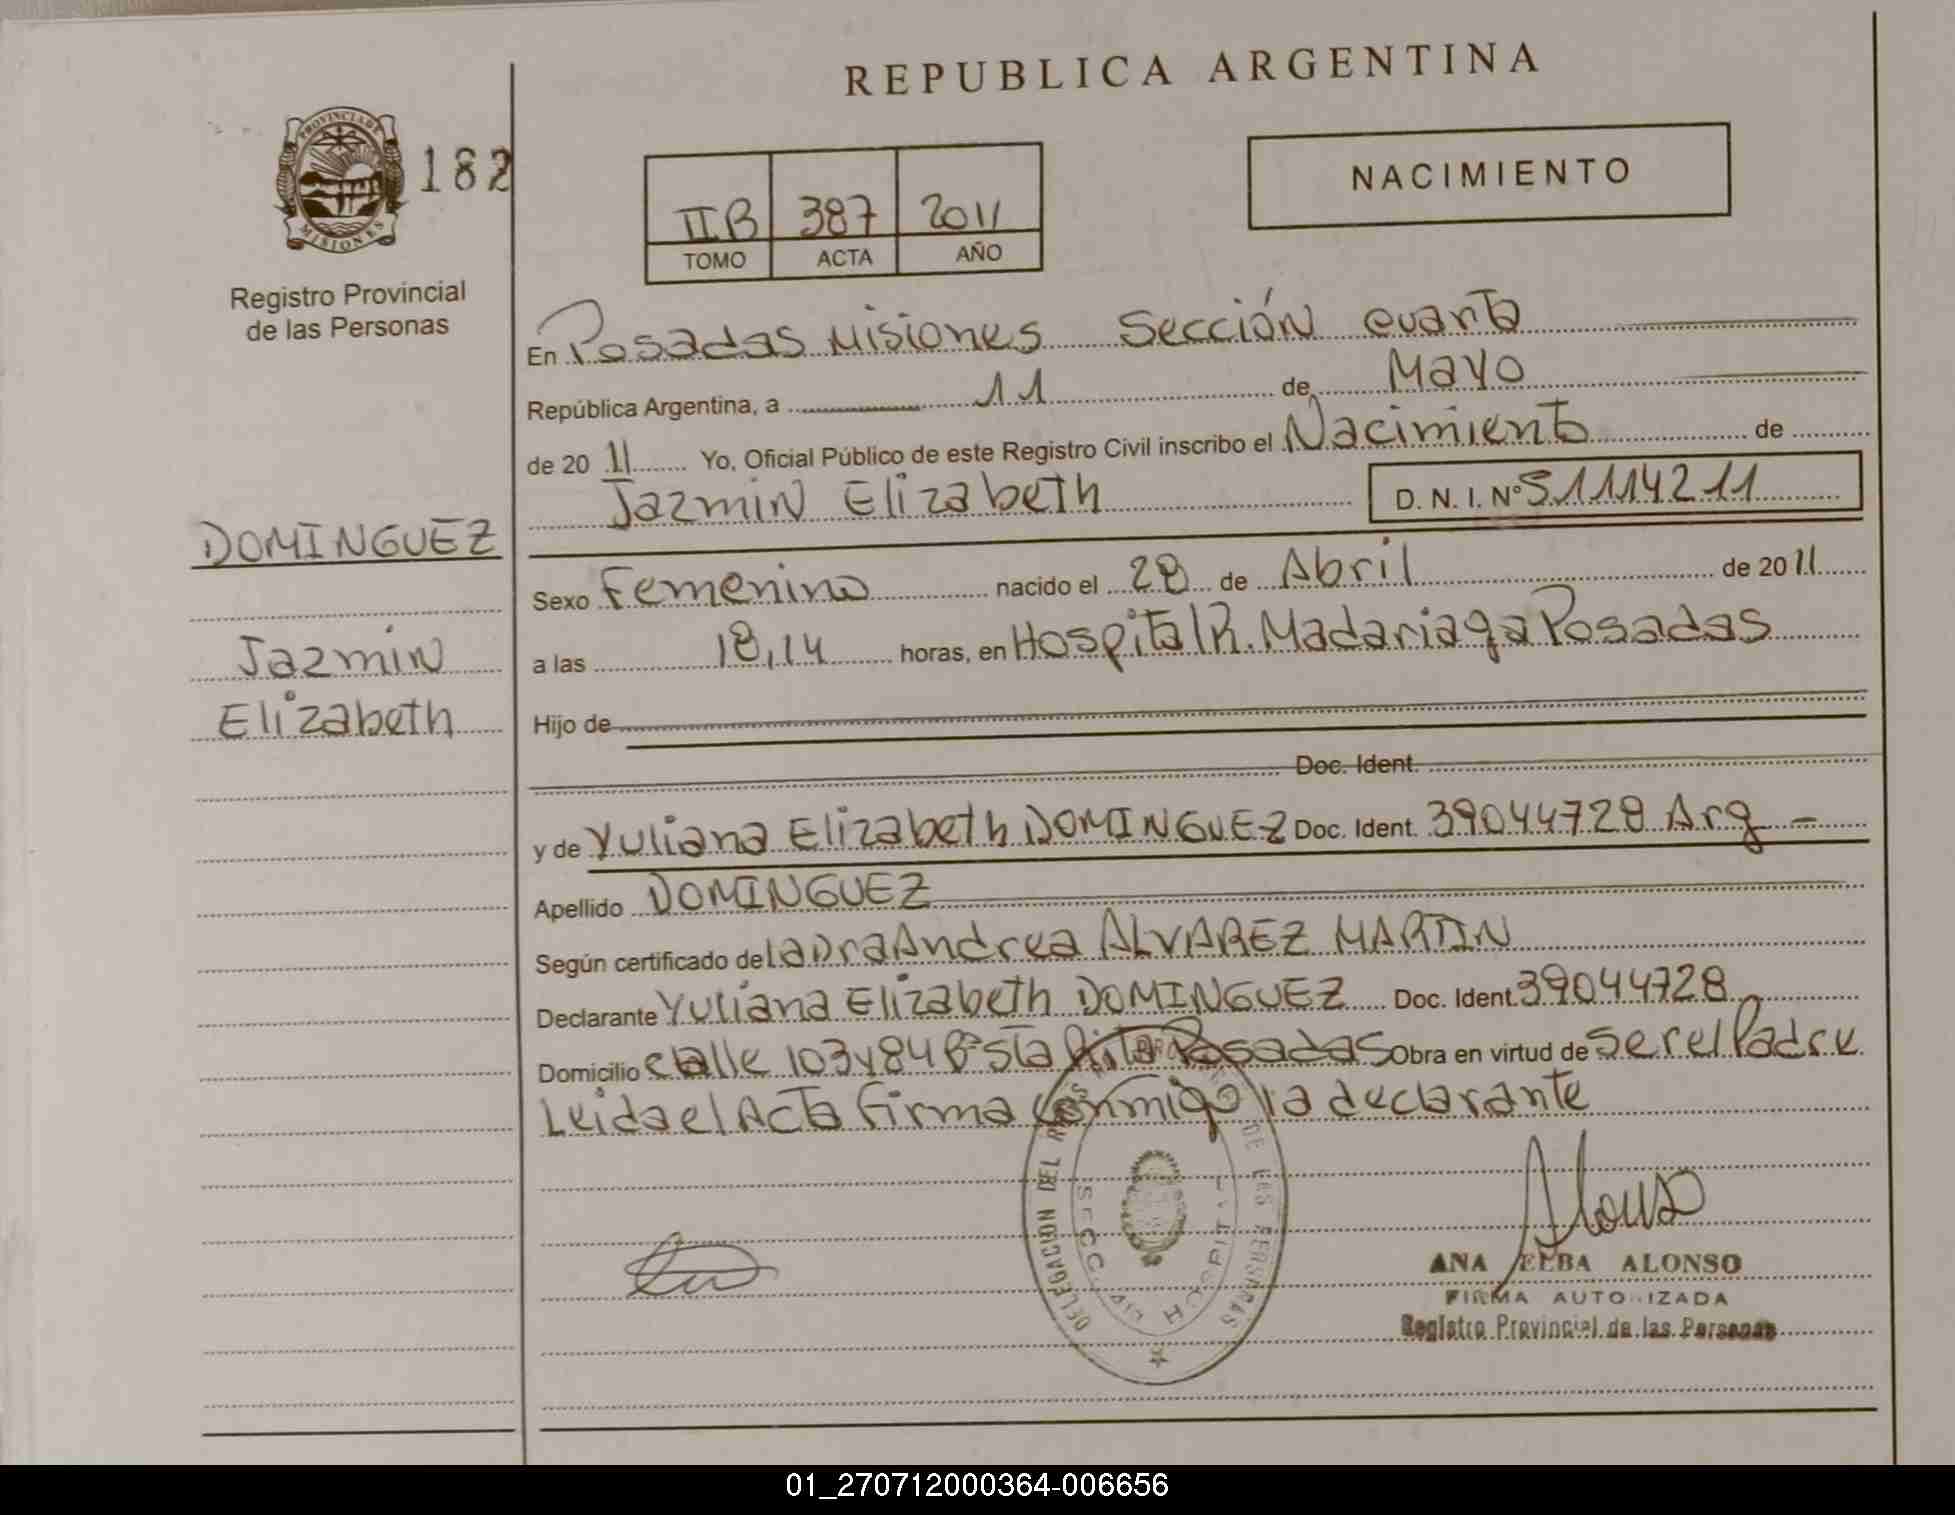 REPUBLICA ARGENTINA
PROVINCIA DE
MISIONES
182
Registro Provincial
de las Personas
IIB 387 2011
TOMO ACTA AÑO
NACIMIENTO
En Posadas Misiones Sección cuarta
República Argentina, a 11 de Mayo
de 20 11 Yo, Oficial Público de este Registro Civil inscribo el Nacimiento de
Jazmin Elizabeth D. N. I. Nº 51114211
DOMINGUEZ
Jazmin
Elizabeth
Sexo Femenino nacido el 28 de Abril de 20 11
a las 18,14 horas, en Hospital R. Madariaga Posadas
Hijo de
Doc. Ident.
y de Yuliana Elizabeth DOMINGUEZ Doc. Ident. 39044728 Arg -
Apellido DOMINGUEZ
Según certificado de la Dra Andrea ALVAREZ MARTIN
Declarante Yuliana Elizabeth DOMINGUEZ Doc. Ident. 39044728
Domicilio calle 103 y 84 Bº Sta Rita Posadas Obra en virtud de ser el Padre
Leida el Acta firma conmigo la declarante
DELEGACION DEL DE LAS PERSONAS
SECC. HOSPITAL
Alonso
ANA ELBA ALONSO
FIRMA AUTORIZADA
Registro Provincial de las Personas
01_270712000364-006656